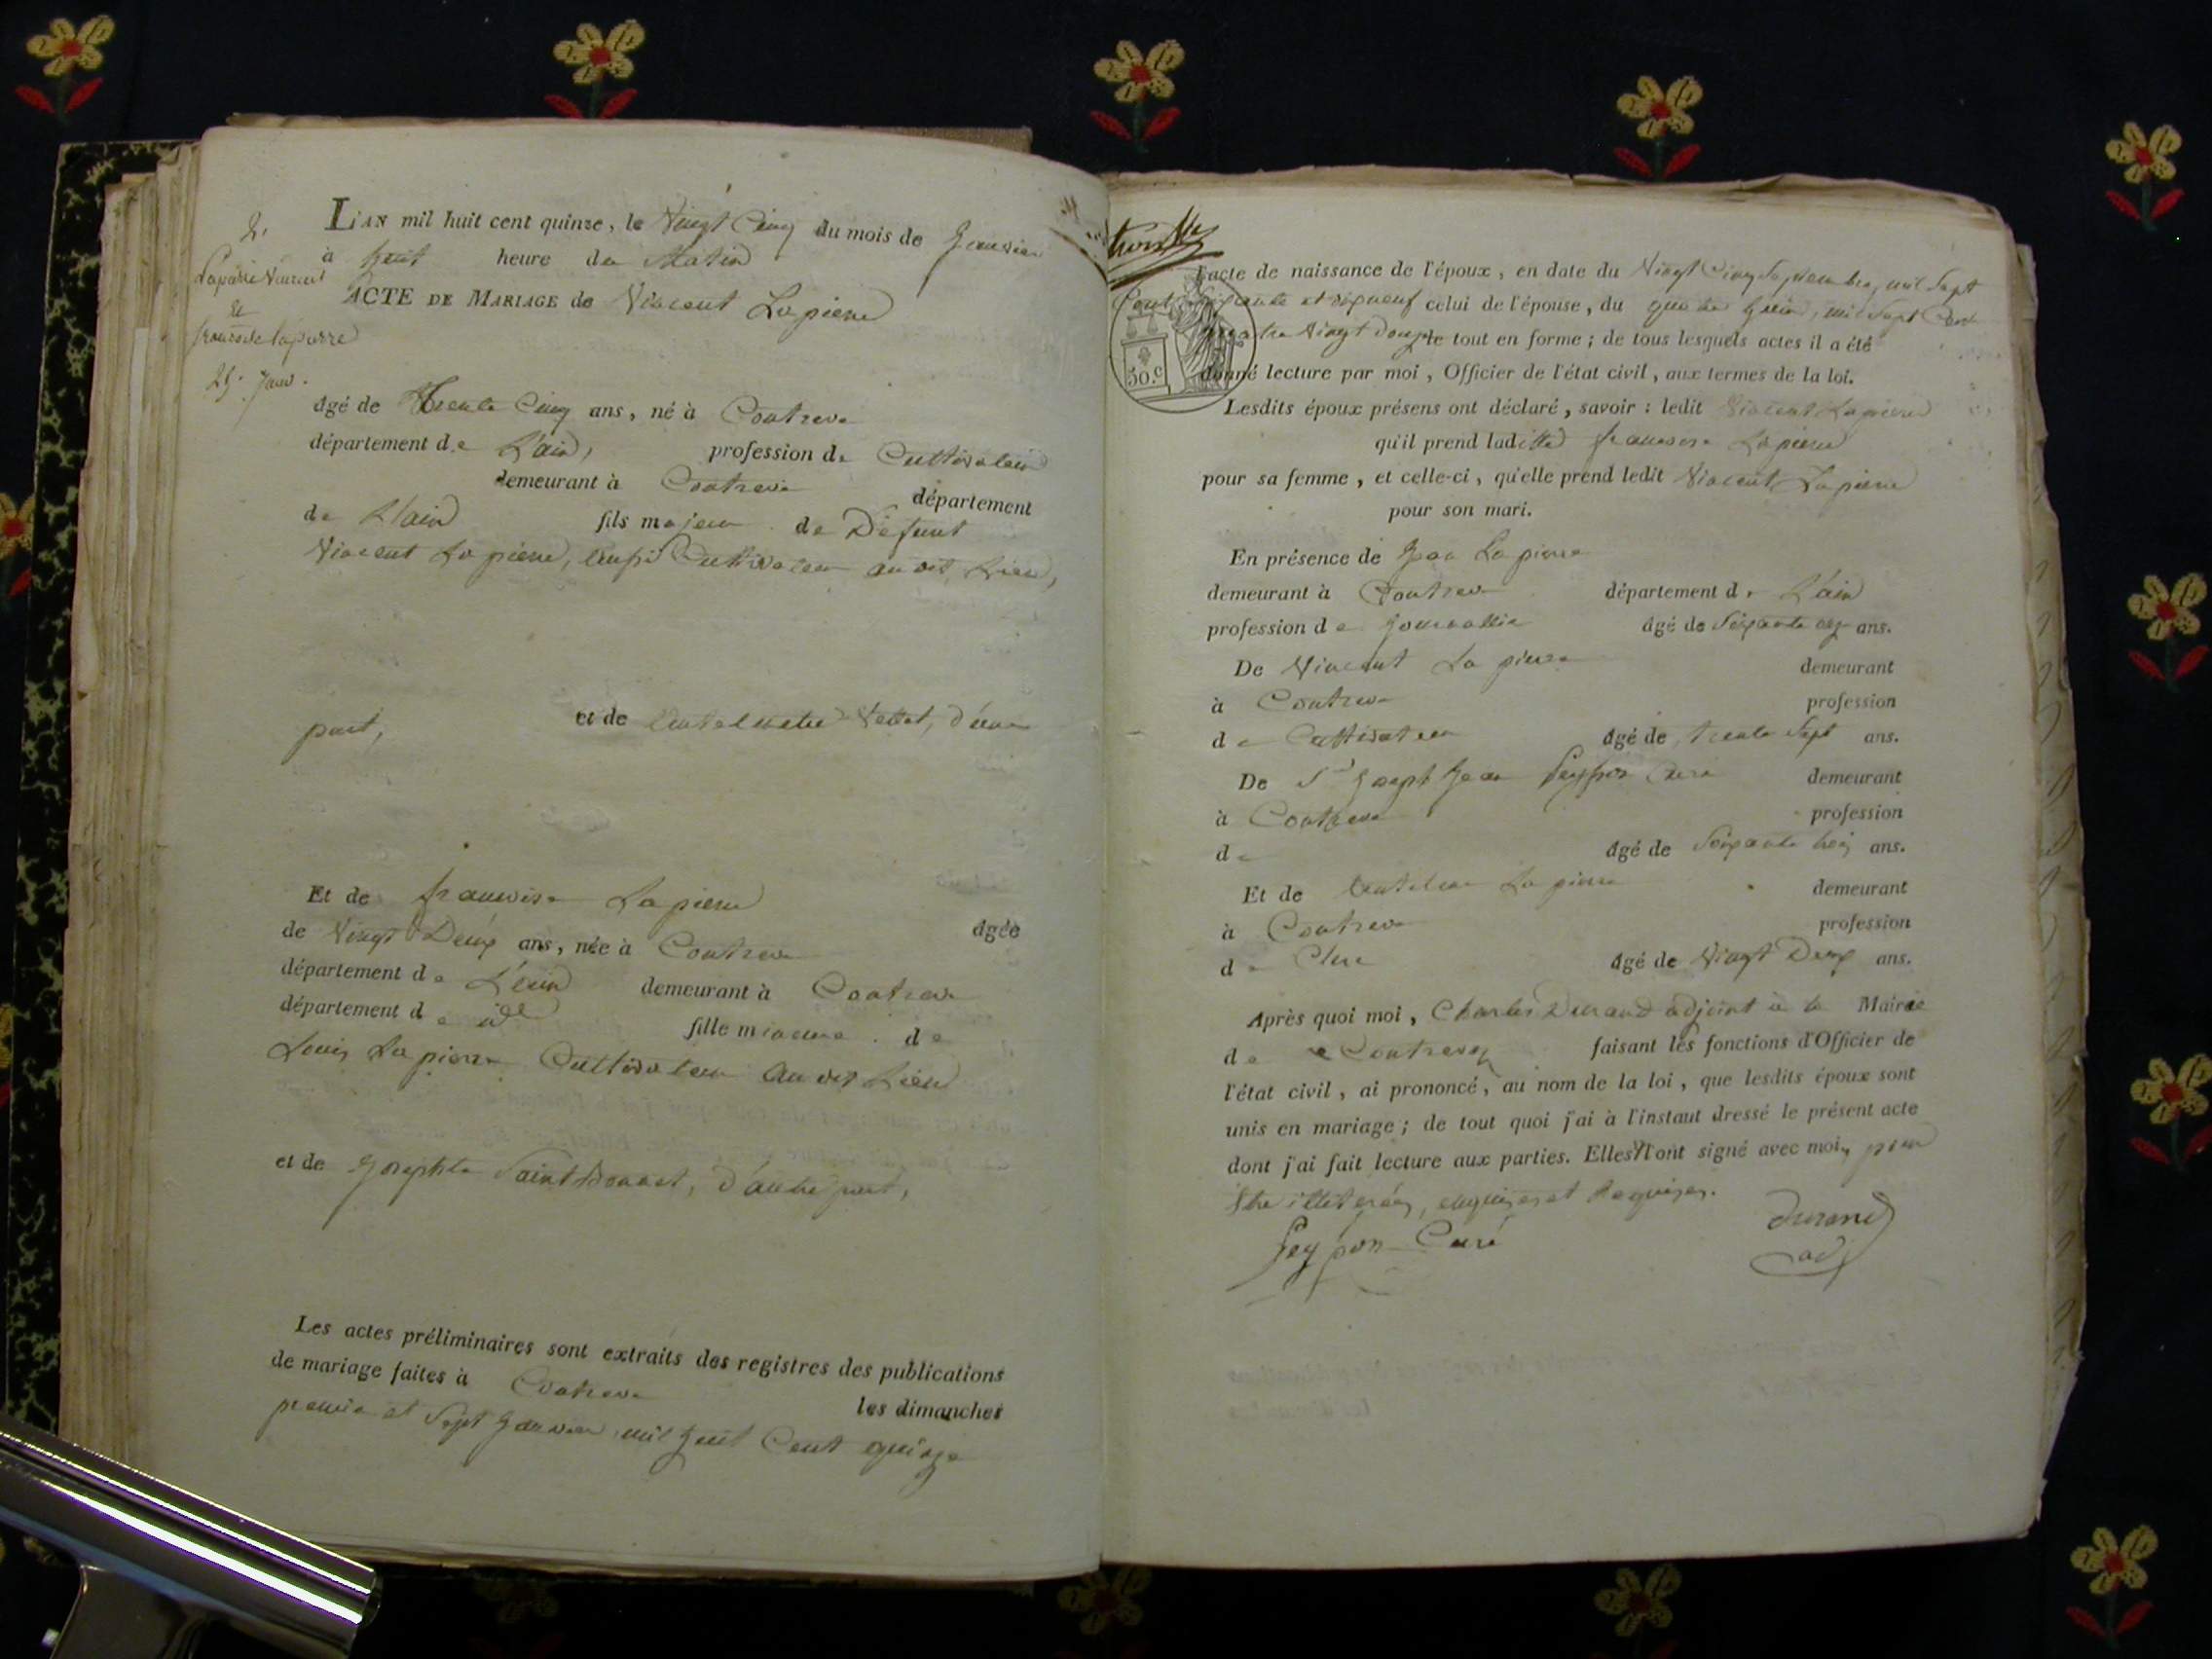 2.
Lapierre Vincent
et
francoise lapierre
25. Janv.
L'an mil huit cent quinze, le Vingt Cinq du mois de Janvier
à huit heure du Matin
ACTE DE MARIAGE de Vincent Lapierre
âgé de Trente Cinq ans, né à Contrevo
département de L'ain, profession de Cultivateur
demeurant à Contrevo département
de L'ain fils majeur de Defunt
Vincent La pierre, Cultivateur au dit Lieu,
et de Vettet, d'une
part,
Et de francoise Lapierre agée
de Vingt Deux ans, née à Contrevo
département de L'ain demeurant à Contrevo
département de id fille mineure de
Louis La pierre Cultivateur au dit Lieu
et de Josephte Saint Bonnet, d'autre part,
Les actes préliminaires sont extraits des registres des publications
de mariage faites à Contrevo les dimanches
premier et Sept Janvier mil huit Cent quinze
l'acte de naissance de l'époux, en date du Vingt Cinq Septembre, mil Sept
Cent Soixante et dixneuf celui de l'épouse, du mil Sept Cent
quatre Vingt Douze le tout en forme ; de tous lesquels actes il a été
donné lecture par moi, Officier de l'état civil, aux termes de la loi.
50.c
Lesdits époux présens ont déclaré, savoir : ledit Vincent Lapierre
qu'il prend laditte francoise Lapierre
pour sa femme, et celle-ci, qu'elle prend ledit Vincent Lapierre
pour son mari.
En présence de Jean La pierre
demeurant à Contrevo département de L'ain
profession de Journallier âgé de Soixante ans.
De Vincent La pierre demeurant
à Contrevo profession
de Cultivateur âgé de trente Sept ans.
De Sr Joseph Jean Peysson Curé demeurant
à Contrevo profession
de âgé de Soixante trois ans.
Et de Lapierre demeurant
à Contrevo profession
de Clerc âgé de Vingt Deux ans.
Après quoi moi, Charles Durand adjoint à la Mairie
de Contrevoz faisant les fonctions d'Officier de
l'état civil, ai prononcé, au nom de la loi, que lesdits époux sont
unis en mariage ; de tout quoi j'ai à l'instant dressé le présent acte
dont j'ai fait lecture aux parties. Elles n'ont signé avec moi, pour
être illiterées, enquises et Requises.
Peysson Curé
Durand
adj